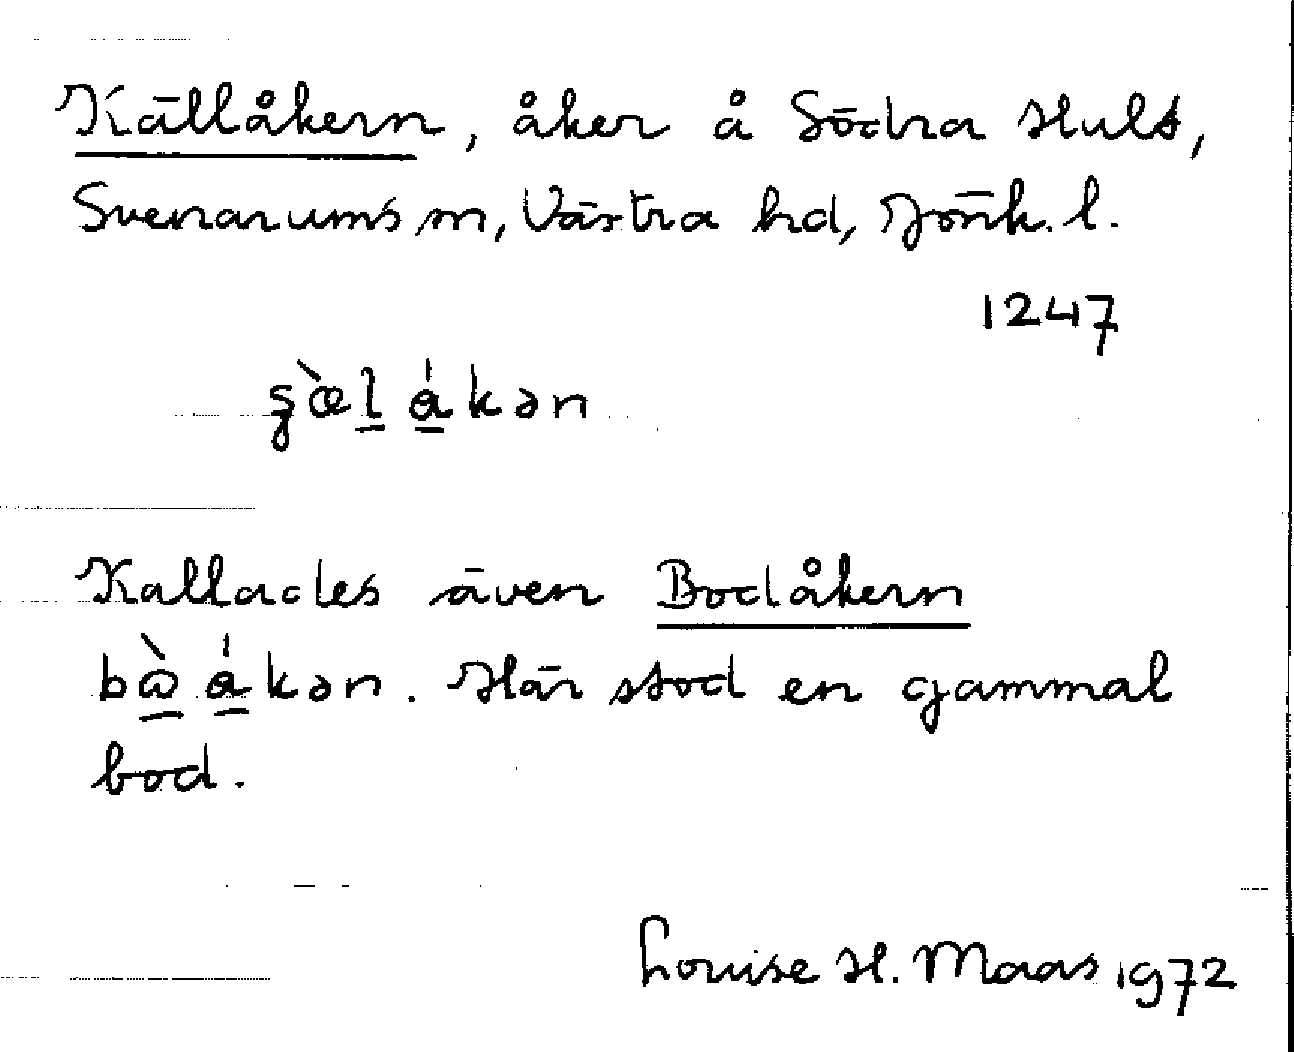 Källåkern, åker å Södra Hult,
Svenarums sn, Västra hd, Jönk. l.
1247
Kallades även Bodåkern
Här stod en gammal
bod.
Louise H. Maas 1972